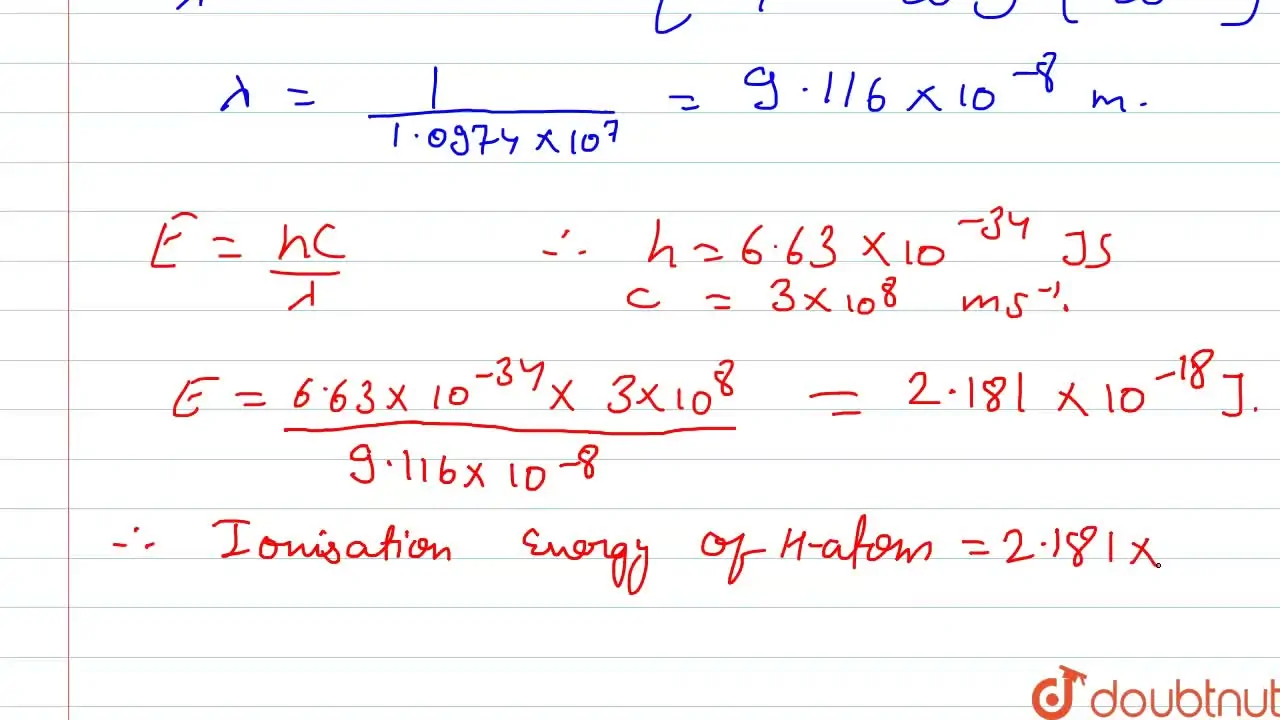 λ = 1 / 1.0974 × 10⁷ = 9.116 × 10⁻⁸ m.
E = hC / λ ∴ h = 6.63 × 10⁻³⁴ JS
C = 3 × 10⁸ ms⁻¹.
E = 6.63 × 10⁻³⁴ × 3 × 10⁸ / 9.116 × 10⁻⁸ = 2.181 × 10⁻¹⁸ J.
∴ Ionisation Energy of H-atom = 2.181 ×
doubtnut